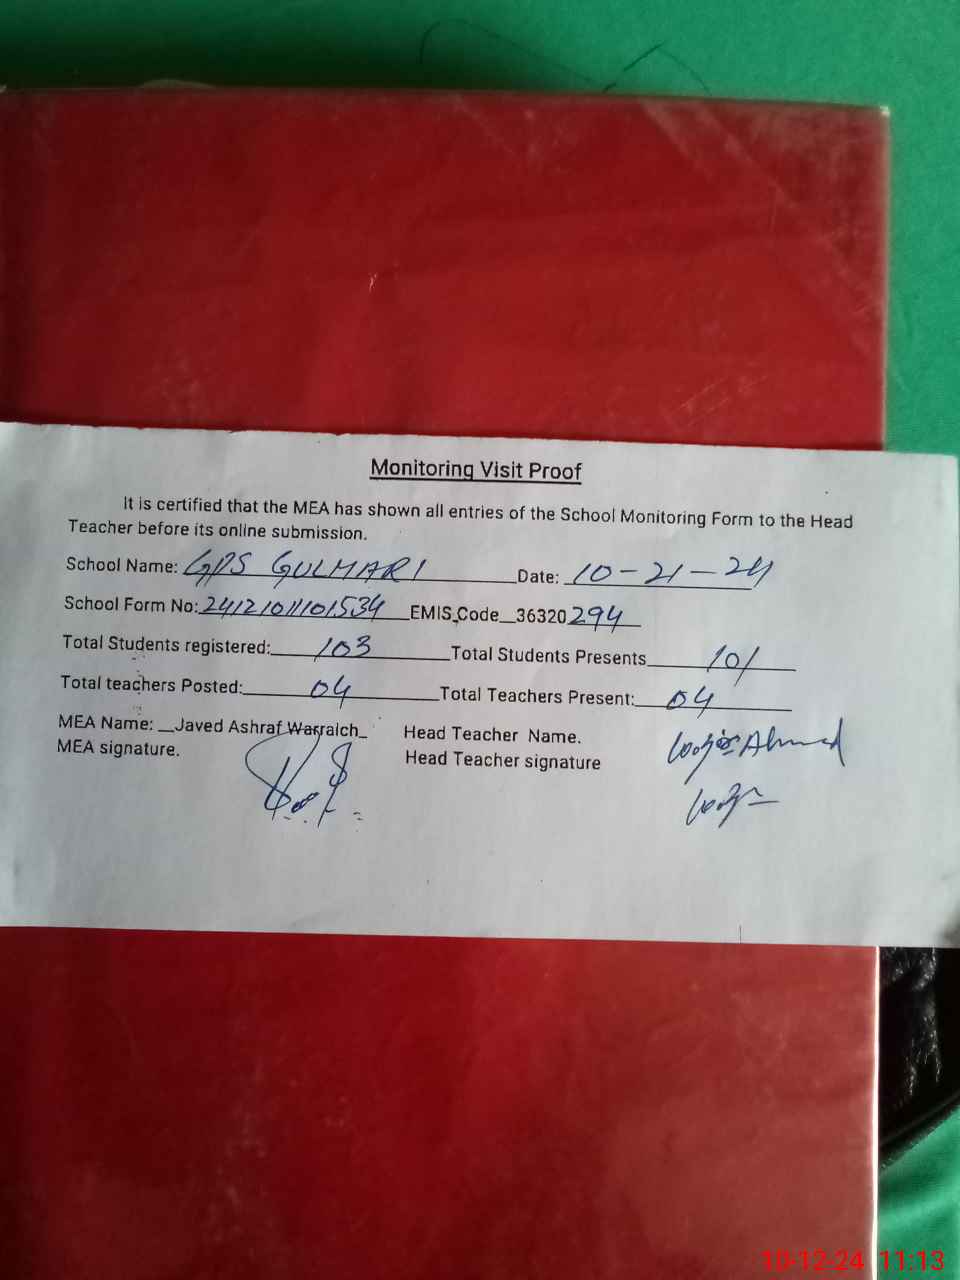 Monitoring Visit Proof
It is certified that the MEA has shown all entries of the School Monitoring Form to the Head
Teacher before its online submission.
School Name: GPS GULMARI Date: 10-21-24
School Form No: 24121011101534 EMIS Code 36320294
Total Students registered: 103 Total Students Presents 101
Total teachers Posted: 04 Total Teachers Present: 04
MEA Name: Javed Ashraf Warraich Head Teacher Name. Ahmed
MEA signature. Head Teacher signature
10-12-24 11:13